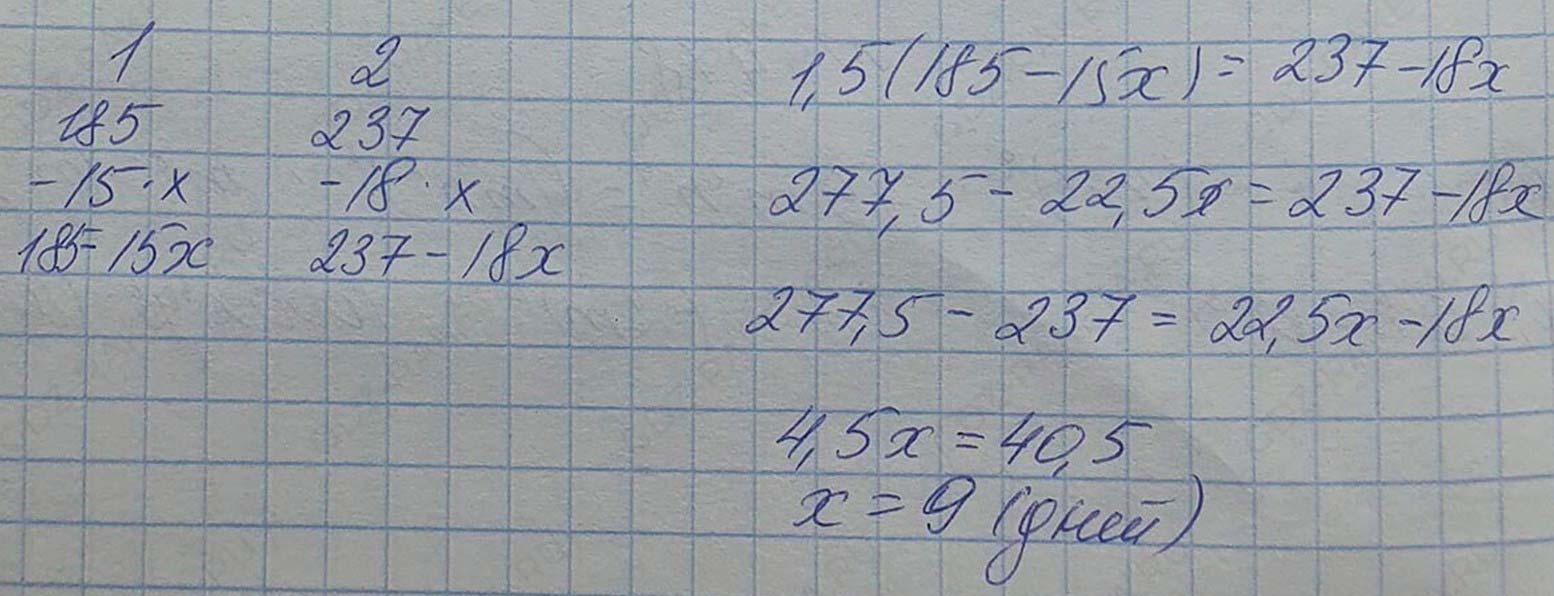 1 2
185 237
-15·x -18·x
185-15x 237-18x
1,5(185-15x)=237-18x
277,5-22,5x=237-18x
277,5-237=22,5x-18x
4,5x=40,5
x=9 (дней)